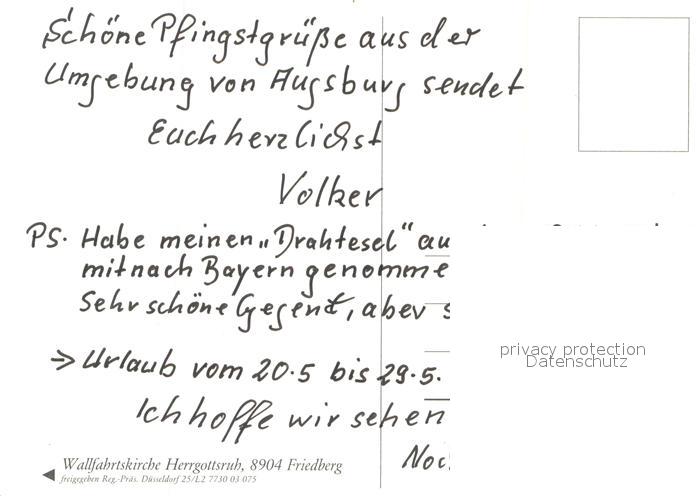 Schöne Pfingstgrüße aus der
Umgebung von Augsburg sendet
Euch herzlichst
Volker
PS. Habe meinen „Drahtesel“ au
mit nach Bayern genomme
Sehr schöne Gegend, aber s
→ Urlaub vom 20.5 bis 29.5.
Ich hoffe wir sehen
Noc
privacy protection
Datenschutz
Wallfahrtskirche Herrgottsruh, 8904 Friedberg
freigegeben Reg.-Präs. Düsseldorf 25/L2 7730 03 075